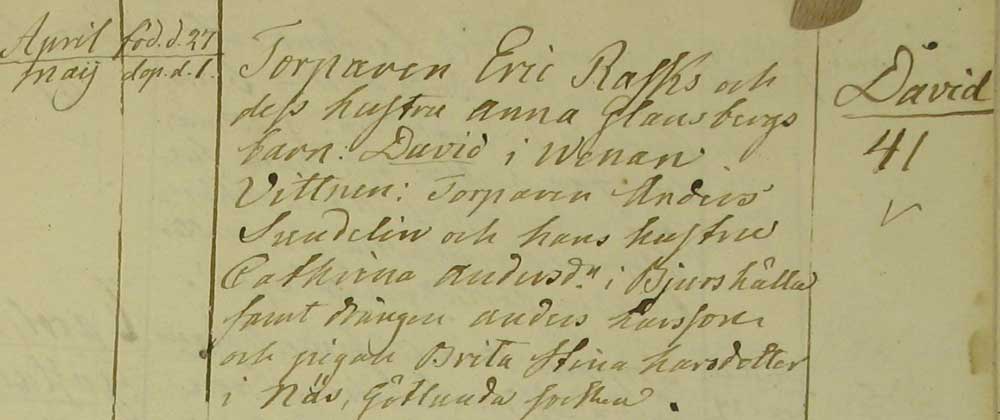 April föd. d. 27
maij döp. d. 1.
Torparen Eric Rasks och
dess hustru anna Glansbergs
barn: David i Wenan
Vittnen: Torparen Anders
Sundelin och hans hustru
Cathrina andersdn i Bjurshälla
samt drängen anders larsson
och pigan Brita Stina larsdotter
i Näs, Götlunda socken.
David
41